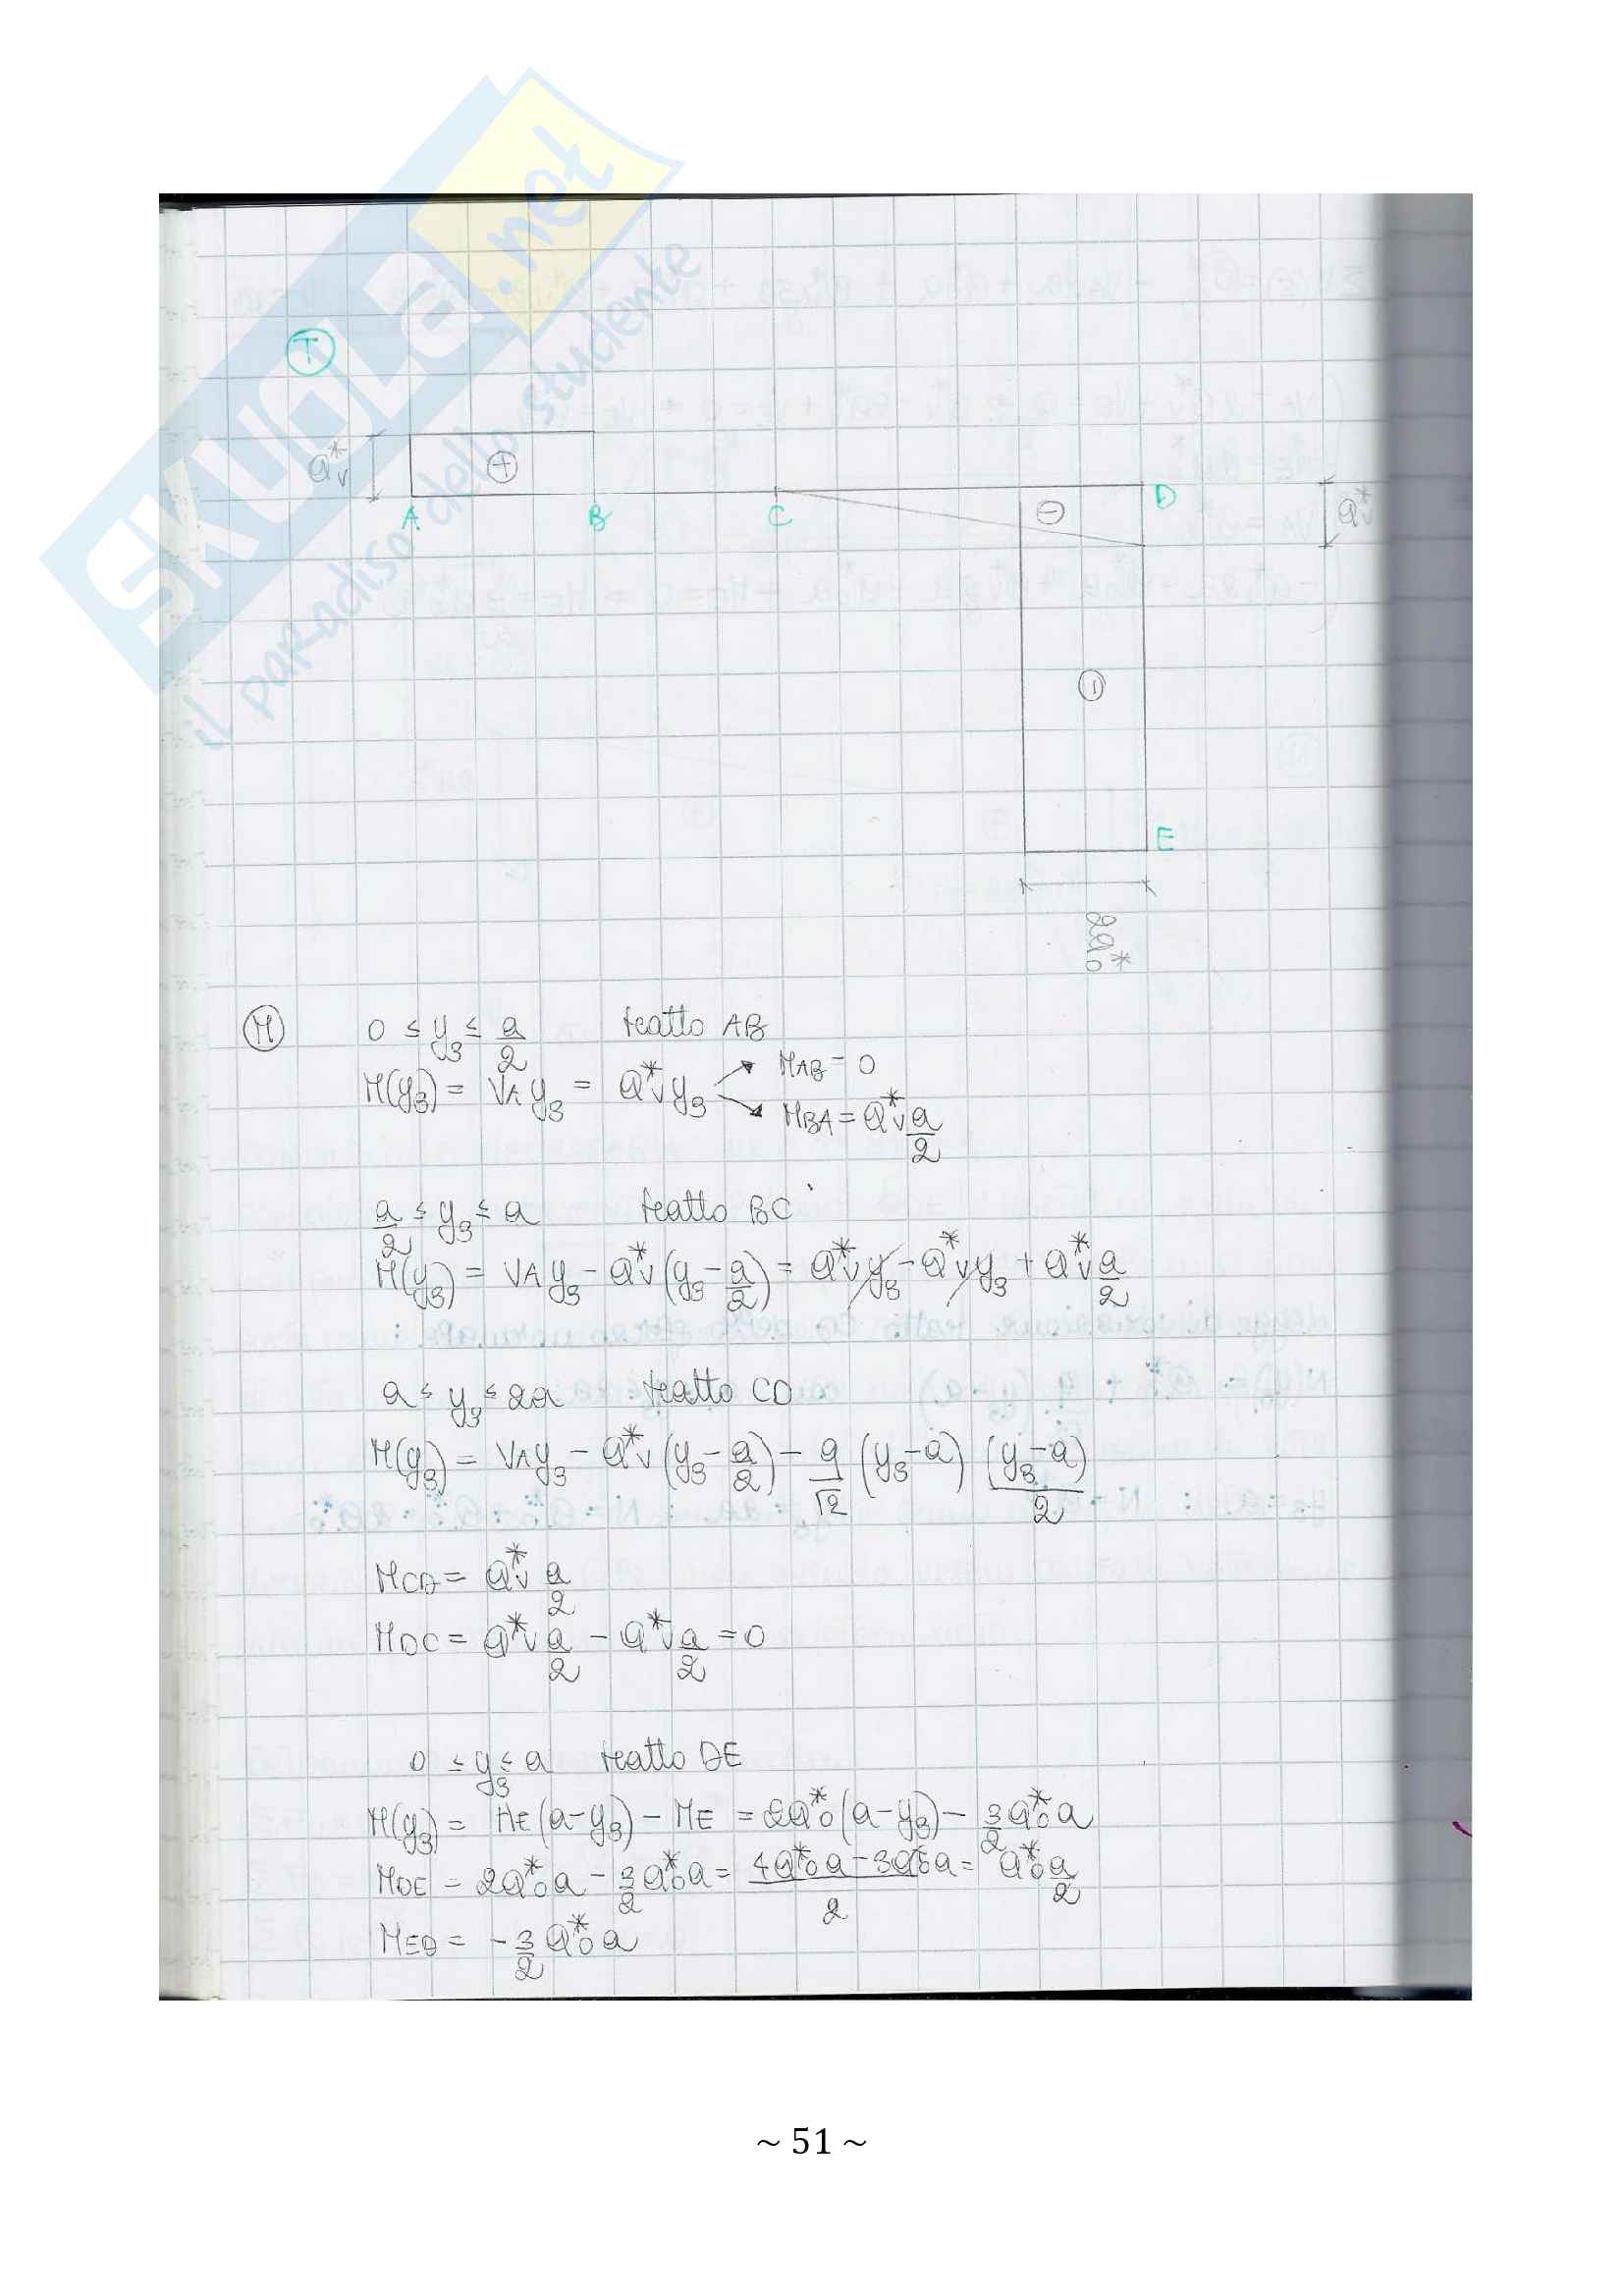 SKUOLA.net
il paradiso dello studente
T
Q*v
+
A B C − D Q*v
−
E
2Q*o
M 0 ≤ y₃ ≤ a/2 tratto AB
M(y₃) = VA y₃ = Q*v y₃ MAB = 0
MBA = Q*v a/2
a/2 ≤ y₃ ≤ a tratto BC
M(y₃) = VA y₃ − Q*v (y₃ − a/2) = Q*v y₃ − Q*v y₃ + Q*v a/2
a ≤ y₃ ≤ 2a tratto CD
M(y₃) = VA y₃ − Q*v (y₃ − a/2) − q/√2 (y₃ − a) (y₃ − a)/2
MCD = Q*v a/2
MDC = Q*v a/2 − Q*v a/2 = 0
0 ≤ y₃ ≤ a tratto DE
M(y₃) = HE (a − y₃) − ME = 2Q*o (a − y₃) − 3/2 Q*o a
MDE = 2Q*o a − 3/2 Q*o a = (4Q*o a − 3Q*o a)/2 = Q*o a/2
MED = − 3/2 Q*o a
~ 51 ~